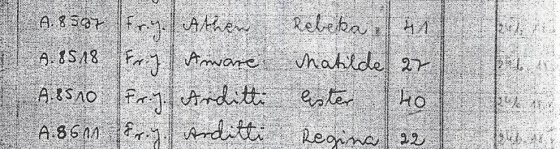 A.8507 Fr.J. Athen Rebeka 41
A.8518 Fr.J Amare Matilde 27
A.8510 Fr.J. Arditti Ester 40
A.8611 Fr.J. Arditti Regina 22